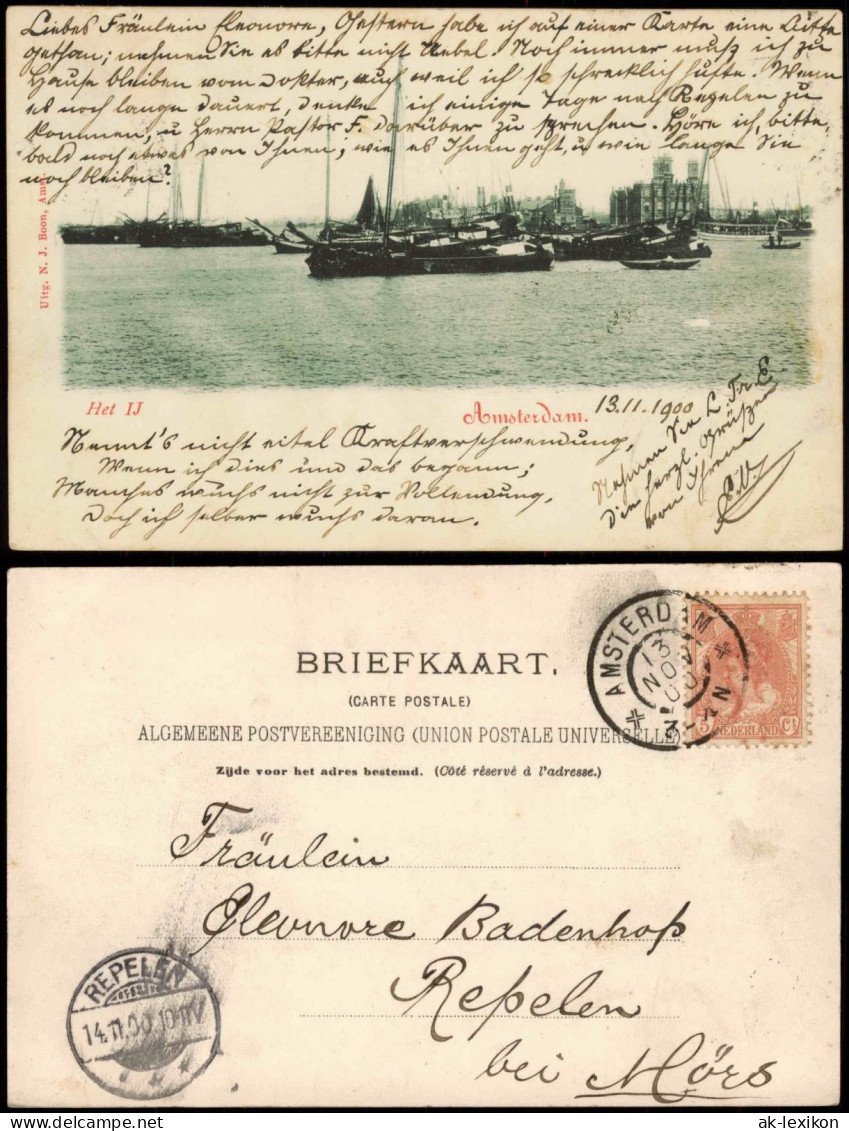 Liebes Fräulein Eleonore, Gestern habe ich auf einer Karte eine Bitte
gethan; nehmen Sie es bitte nicht Uebel. Noch immer musz ich zu
Hause bleiben vom Dokter, auch weil ich so schrecklich huste. Wenn
es noch lange dauert, denke ich einige Tage nach Repelen zu
kommen, u Herrn Pastor F. darüber zu sprechen. Höre ich, bitte,
bald noch etwas von Ihnen; wie es Ihnen geht, u wie lange Sie
noch bleiben?
Uitg. N. J. Boon, Amd.
Het IJ
Amsterdam.
13.11.1900
Nennt's nicht eitel Kraftverschwendung,
Wenn ich dies und das begann;
Manches wuchs nicht zur Vollendung,
Doch ich selber wuchs daran.
Nehmen Sie L. Fr. E.
die herzl. Grüszen
von Ihrem
BRIEFKAART.
(CARTE POSTALE)
ALGEMEENE POSTVEREENIGING (UNION POSTALE UNIVERSELLE)
Zijde voor het adres bestemd. (Côté réservé à l'adresse.)
AMSTERDAM
13 NOV 00
5 Ct
NEDERLAND
Fräulein
Eleonore Badenhop
Repelen
bei Mörs
REPELEN
14.11.00 10-11V
ak-lexikon